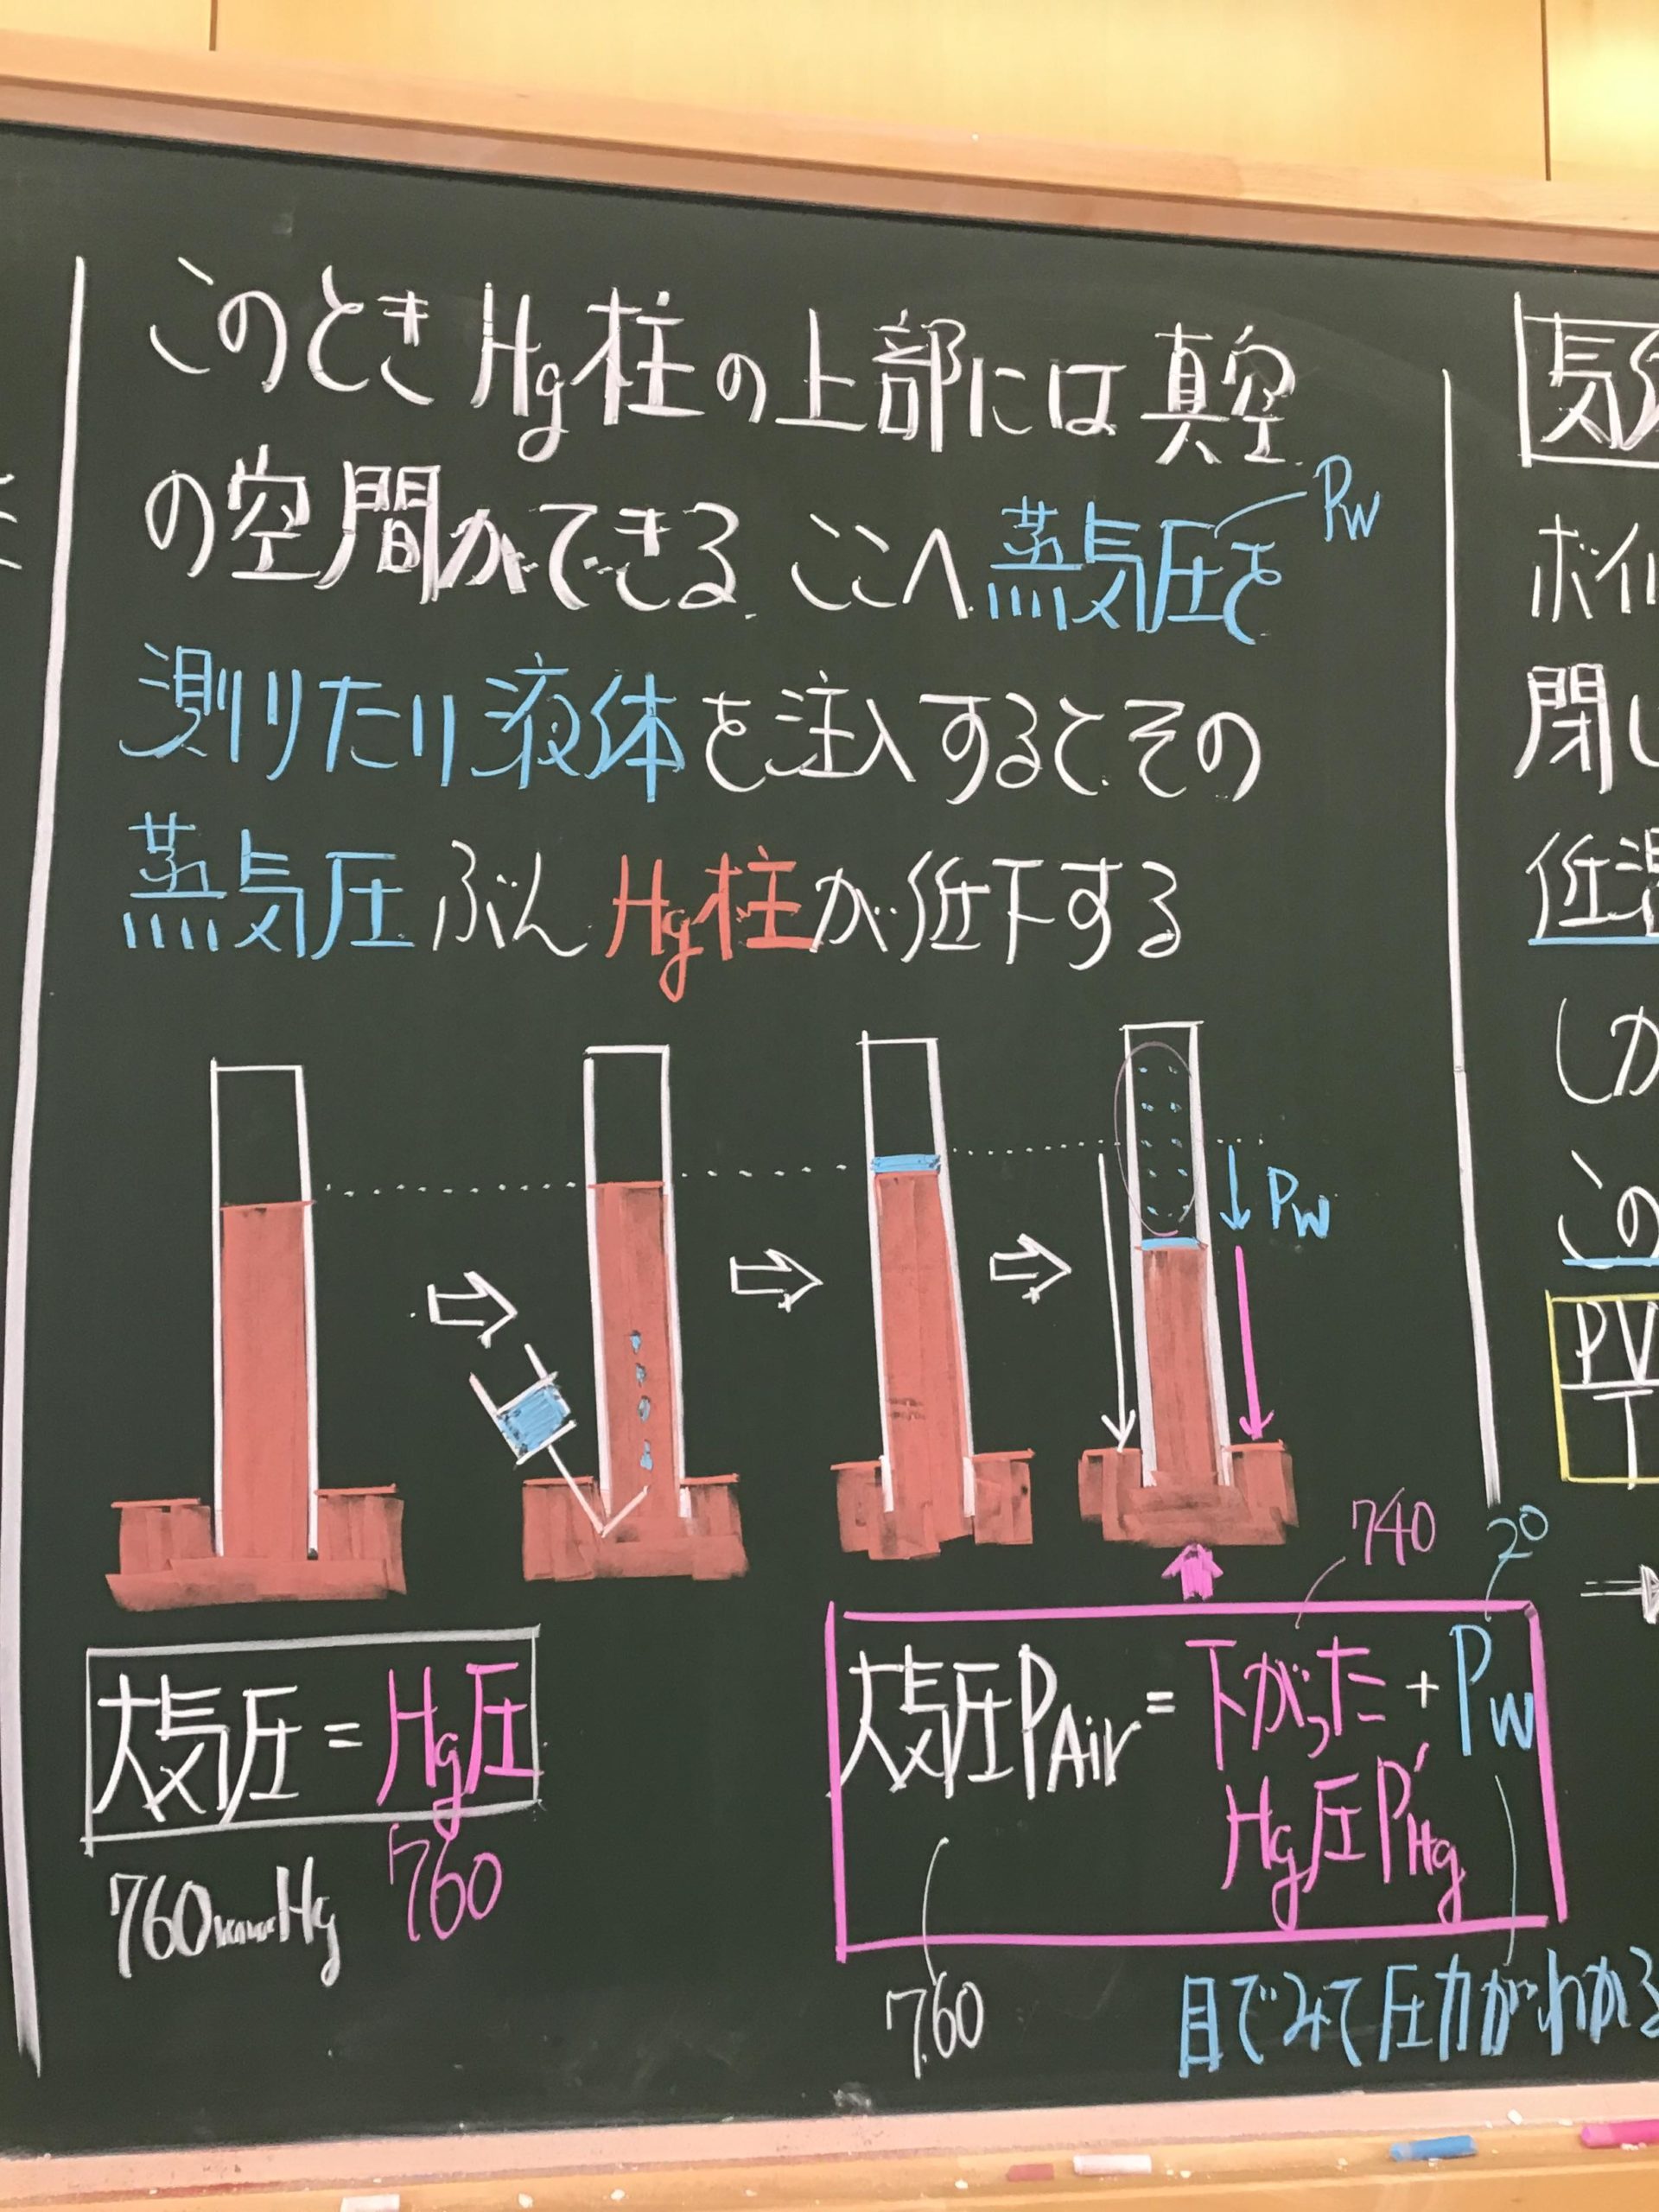 このときHg柱の上部には真空
の空間ができる ここへ蒸気圧を
Pw
測りたい液体を注入するとその
蒸気圧ぶんHg柱が低下する
Pw
大気圧=Hg圧
760mmHg 760
740 20
大気圧PAir=下がった+Pw
Hg圧P'Hg
760
目でみて圧力がわかる
ボイル
閉し
低温
しか
この
PV
T